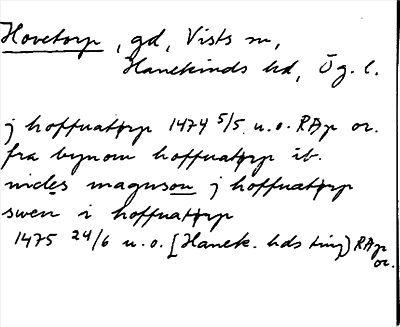 Hovetorp, gd, Vists sn,
Hanekinds hd, Ög. l.
j hoffuattorp 1474 5/5 u.o. RAp or.
fra bynom hoffuattorp ib.
nicles magnuson j hoffuattorp
swen i hoffuattorp
1475 24/6 u.o. [Hanek. hds ting) RAp
or.